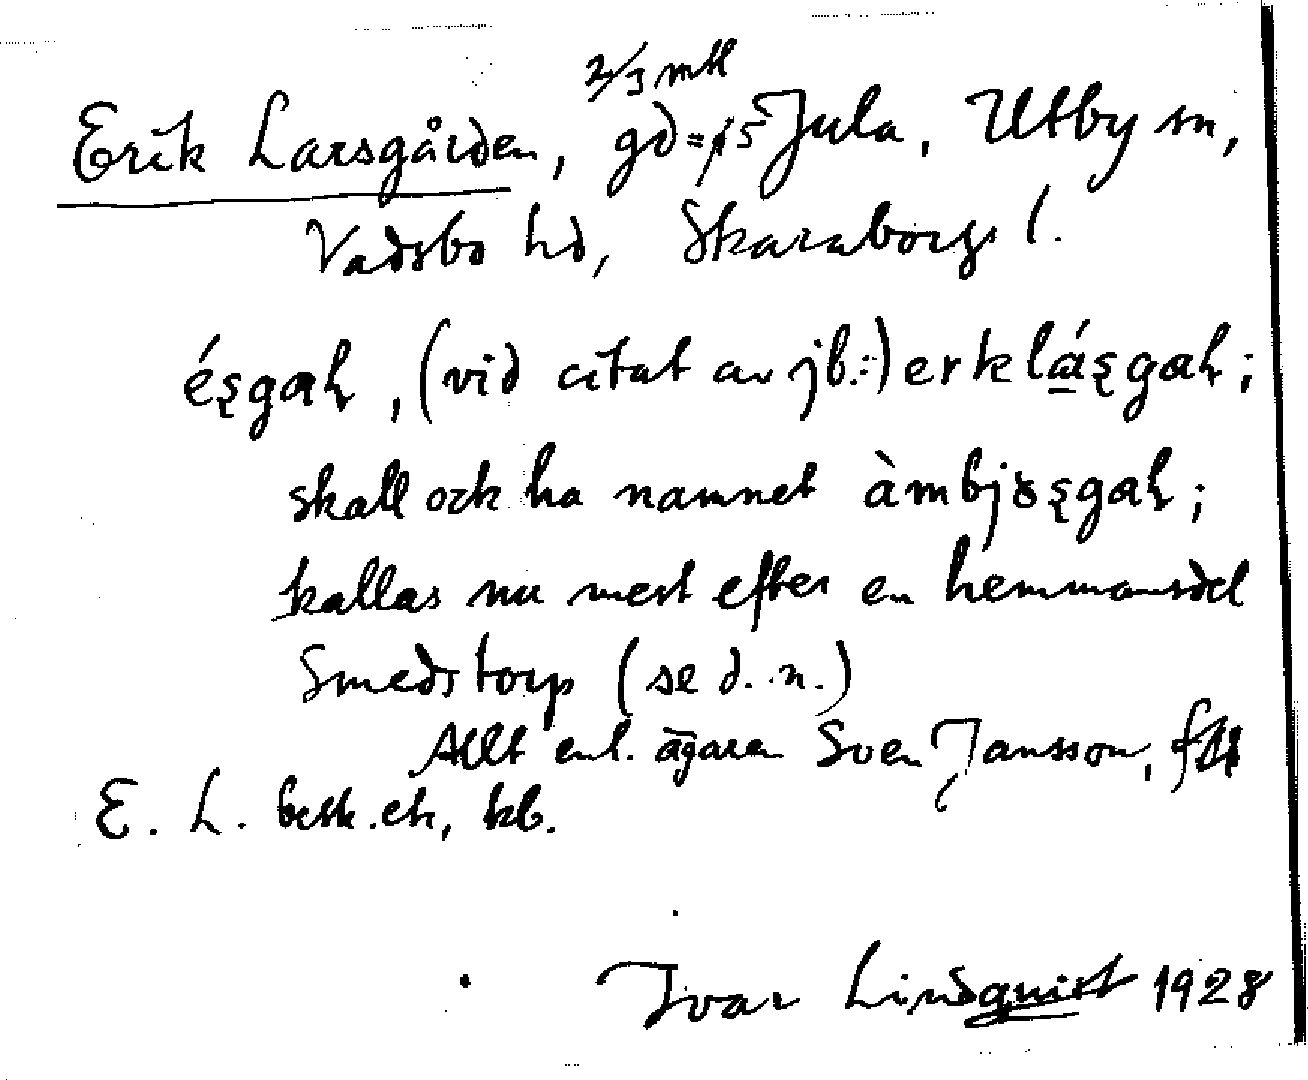 2/3 mtl
Erik Larsgården, gd = 15 Jula, Utby sn,
Vadsbo hd, Skaraborgs l.
ésgaḷ, (vid citat av jb.:) erklásgaḷ;
skall ock ha namnet àmbjɷsgaḷ;
kallas nu mest efter en hemmansdel
Smedstorp (se d. n.)
Allt enl. ägaren Sven Jansson,
E. L. betk. ek, kb.
Ivar Lindquist 1928